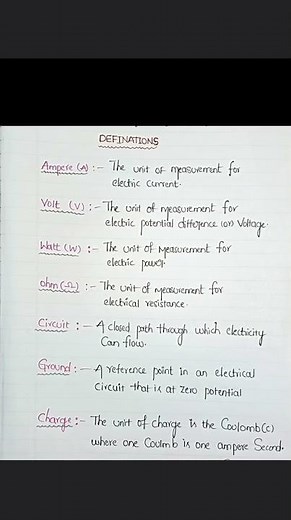 DEFINATIONS
Ampere (A) :- The unit of measurement for
electric current.
Volt (V) :- The unit of measurement for
electric potential difference (or) Voltage.
Watt (W) :- The unit of Measurement for
electric power.
ohm (Ω) :- The unit of measurement for
electrical resistance.
Circuit :- A closed path through which electricity
Can flow.
Ground :- A reference point in an electrical
Circuit that is at zero potential
Charge :- The unit of charge is the Coolomb(c)
where one Coulmb is one ampere Second.